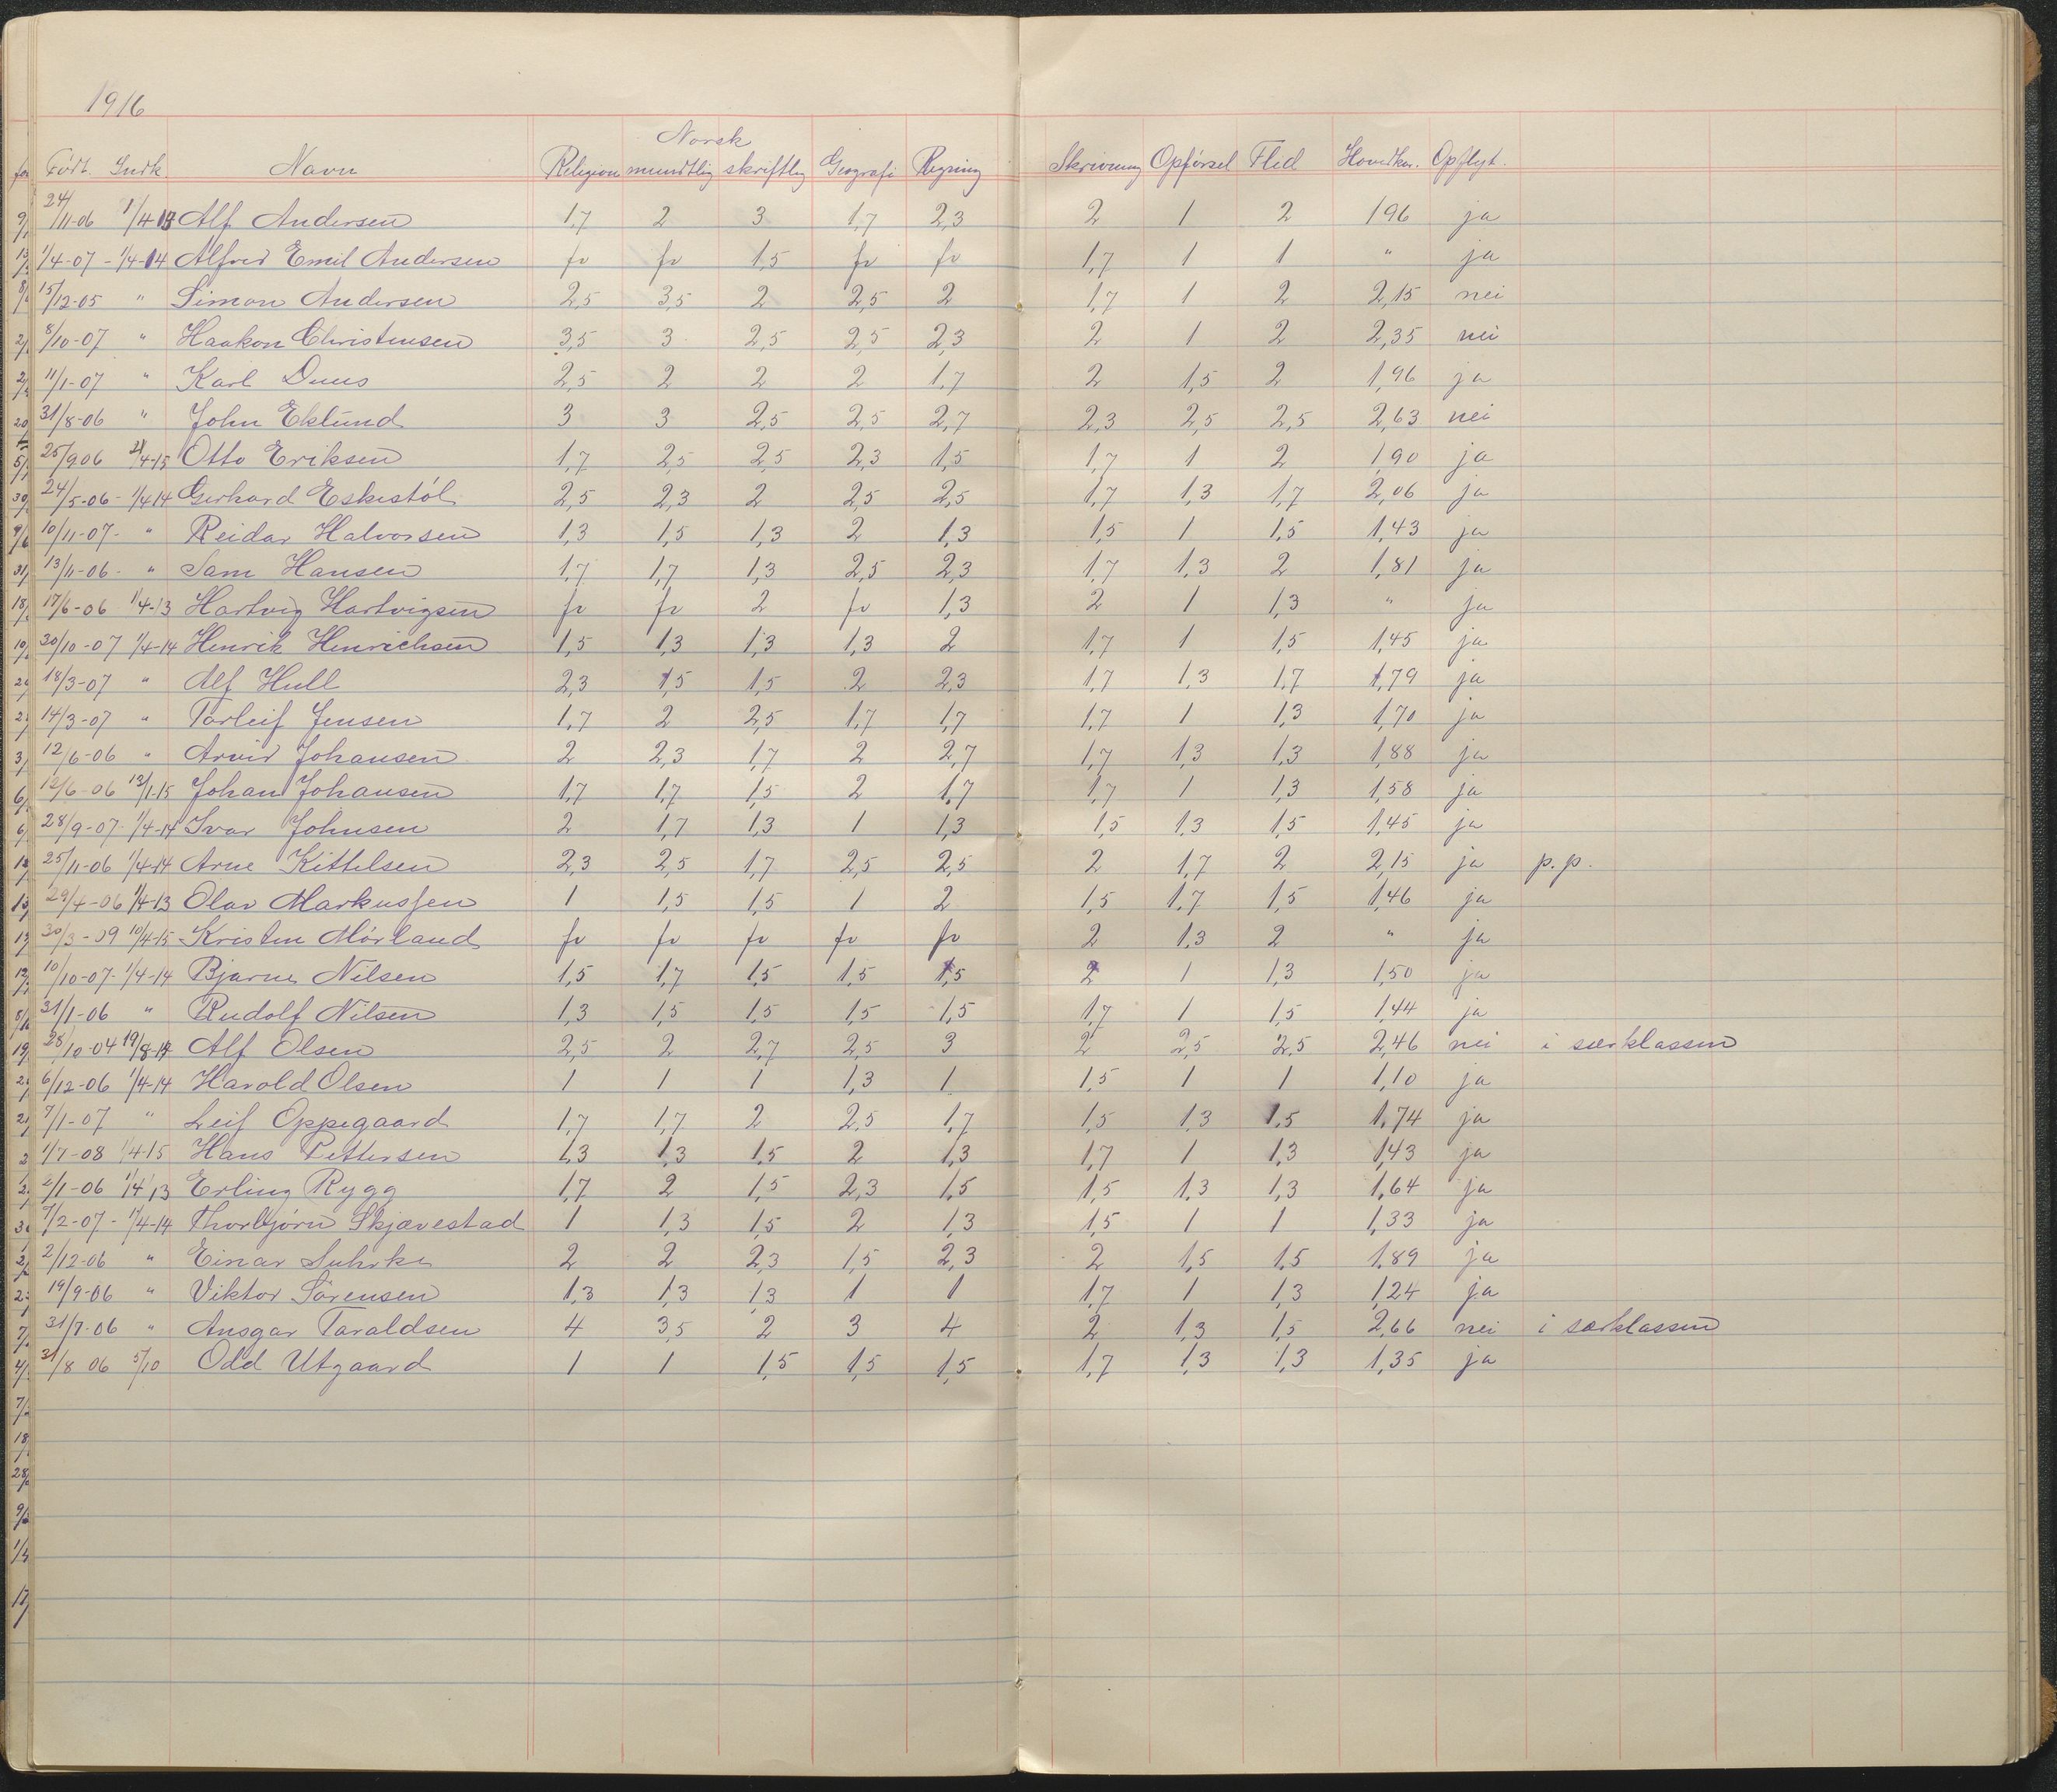 1916
Norsk
Født. Indk. Navn Religion mundtlig skriftlig Geografi Regning Skrivning Opførsel Flid Hovedkar. Opflyt.
24/11-06 1/4-13 Alf Andersen 1,7 2 3 1,7 2,3 2 1 2 1,96 ja
1/4-07 - 1/4-14 Alfred Emil Andersen fr fr 1,5 fr fr 1,7 1 1 " ja
15/12-05 " Simon Andersen 2,5 3,5 2 2,5 2 1,7 1 2 2,15 nei
8/10-07 " Haakon Christensen 3,5 3 2,5 2,5 2,3 2 1 2 2,35 nei
11/1-07 " Karl Duus 2,5 2 2 2 1,7 2 1,5 2 1,96 ja
31/8-06 " John Eklund 3 3 2,5 2,5 2,7 2,3 2,5 2,5 2,63 nei
25/9 06 4-15 Otto Eriksen 1,7 2,5 2,5 2,3 1,5 1,7 1 2 1,90 ja
24/5-06 - 1/4 14 Gerhard Eskestøl 2,5 2,3 2 2,5 2,5 1,7 1,3 1,7 2,06 ja
10/11-07- " Reidar Halvorsen 1,3 1,5 1,3 2 1,3 1,5 1 1,5 1,43 ja
13/11-06- " Sam Hansen 1,7 1,7 1,3 2,5 2,3 1,7 1,3 2 1,81 ja
17/6-06 1/4-13 Hartvig Hartvigsen fr fr 2 fr 1,3 2 1 1,3 " ja
30/10-07 1/4-14 Henrik Henrichsen 1,5 1,3 1,3 1,3 2 1,7 1 1,5 1,45 ja
18/3-07 " Alf Hull 2,3 1,5 1,5 2 2,3 1,7 1,3 1,7 1,79 ja
14/3-07 " Torleif Jensen 1,7 2 2,5 1,7 1,7 1,7 1 1,3 1,70 ja
12/6-06 " Arvid Johansen 2 2,3 1,7 2 2,7 1,7 1,3 1,3 1,88 ja
12/6-06 13/1-15 Johan Johansen 1,7 1,7 1,5 2 1,7 1,7 1 1,3 1,58 ja
28/9-07 1/4-14 Ivar Johnsen 2 1,7 1,3 1 1,3 1,5 1,3 1,5 1,45 ja
25/11-06 1/4-14 Arne Kittelsen 2,3 2,5 1,7 2,5 2,5 2 1,7 2 2,15 ja p.p.
29/4-06 1/4-13 Olav Markussen 1 1,5 1,5 1 2 1,5 1,7 1,5 1,46 ja
30/3-09 10/4-15 Kristen Mörland fr fr fr fr fr 2 1,3 2 " ja
10/10-07- 1/4-14 Bjarne Nilsen 1,5 1,7 1,5 1,5 1,5 2 1 1,3 1,50 ja
31/1-06 " Rudolf Nilsen 1,3 1,5 1,5 1,5 1,5 1,7 1 1,5 1,44 ja
28/10-04 19/8-14 Alf Olsen 2,5 2 2,7 2,5 3 2 2,5 2,5 2,46 nei i særklassen
6/12-06 1/4-14 Harald Olsen 1 1 1 1,3 1 1,5 1 1 1,10 ja
7/1-07 " Leif Oppegaard 1,7 1,7 2 2,5 1,7 1,5 1,3 1,5 1,74 ja
1/7-08 1/4-15 Hans Pettersen 1,3 1,3 1,5 2 1,3 1,7 1 1,3 1,43 ja
2/1-06 1/4 13 Erling Rygg 1,7 2 1,5 2,3 1,5 1,5 1,3 1,3 1,64 ja
7/2-07 - 1/4-14 Thorbjørn Skjævestad 1 1,3 1,5 2 1,3 1,5 1 1 1,33 ja
2/12-06 " Einar Suhrke 2 2 2,3 1,5 2,3 2 1,5 1,5 1,89 ja
19/9-06 " Viktor Sörensen 1,3 1,3 1,3 1 1 1,7 1 1,3 1,24 ja
31/7-06 " Ansgar Taraldsen 4 3,5 2 3 4 2 1,3 1,5 2,66 nei i særklassen
31/8 06 5/10 Odd Utgaard 1 1 1,5 1,5 1,5 1,7 1,3 1,3 1,35 ja